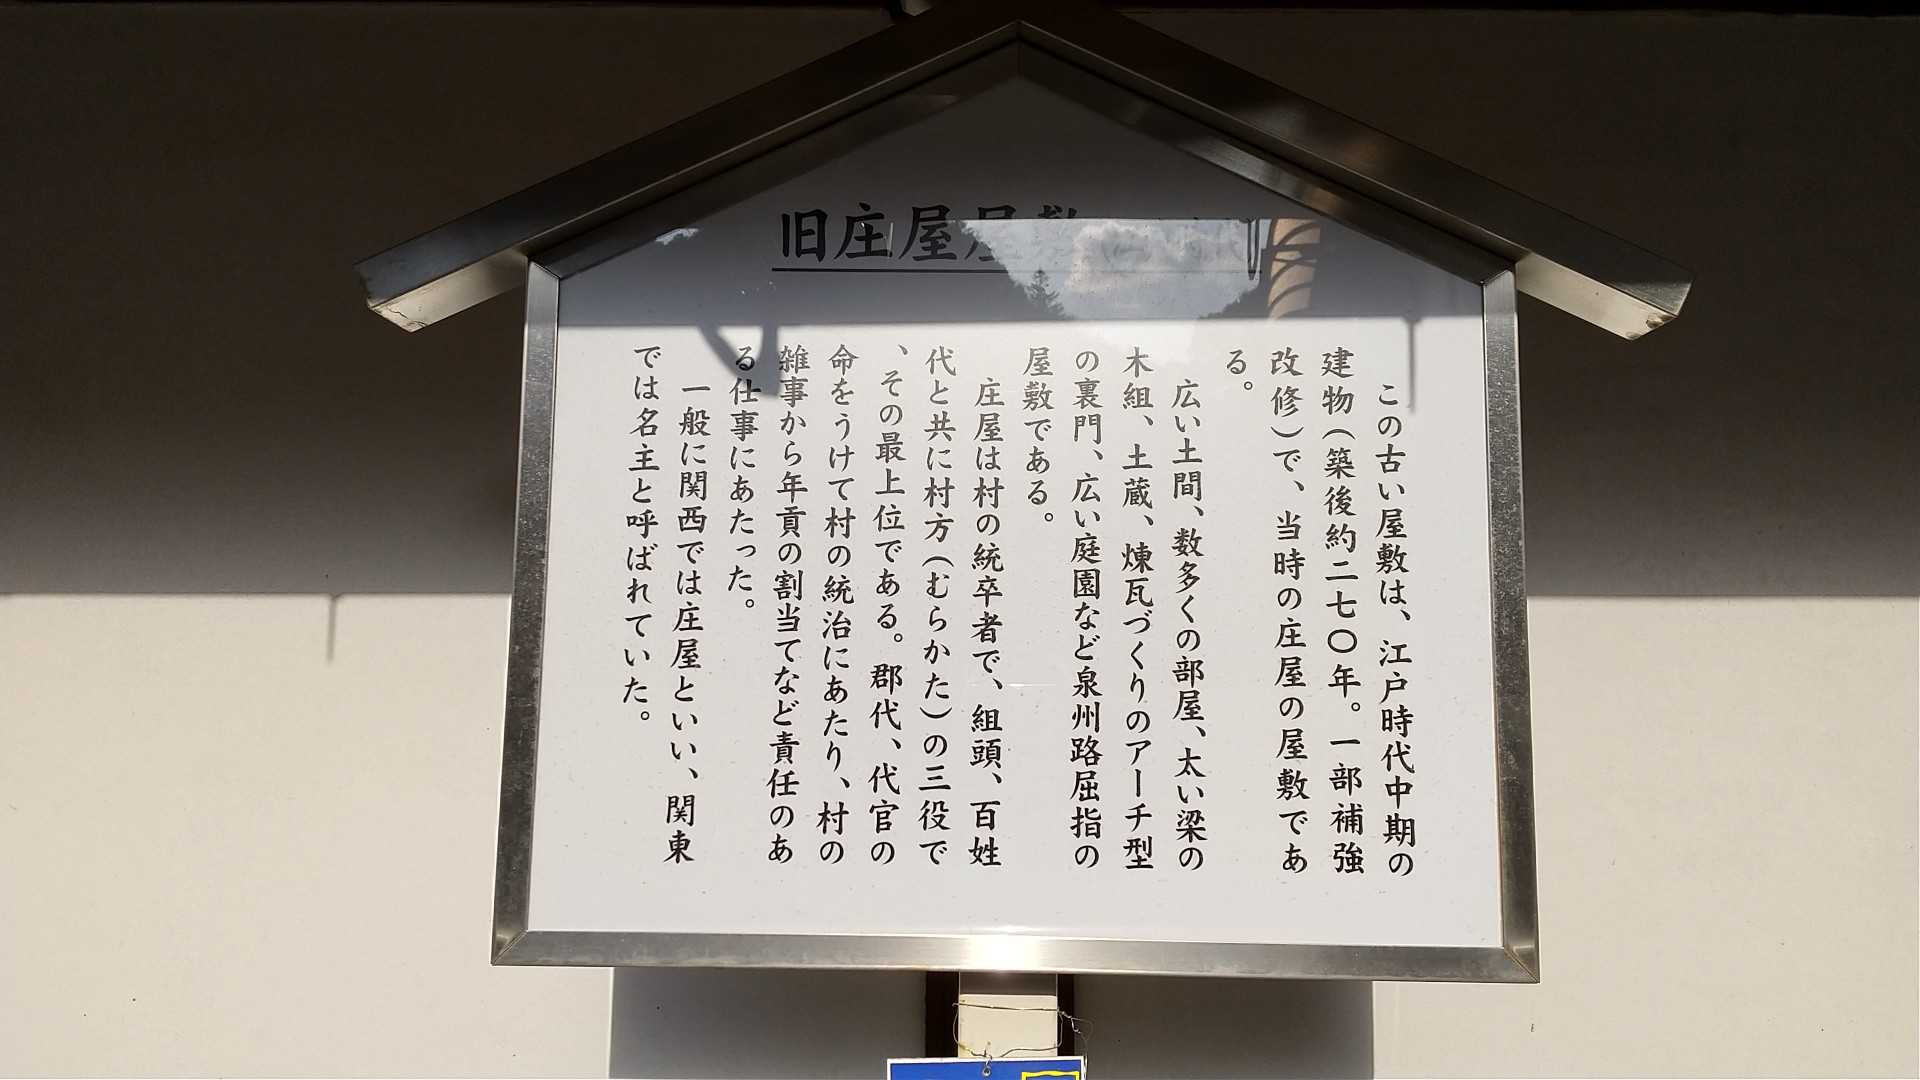 旧庄屋屋敷
この古い屋敷は、江戸時代中期の
建物(築後約二七〇年。一部補強
改修)で、当時の庄屋の屋敷であ
る。
広い土間、数多くの部屋、太い梁の
木組、土蔵、煉瓦づくりのアーチ型
の裏門、広い庭園など泉州路屈指の
屋敷である。
庄屋は村の統卒者で、組頭、百姓
代と共に村方(むらかた)の三役で
、その最上位である。郡代、代官の
命をうけて村の統治にあたり、村の
雑事から年貢の割当てなど責任のあ
る仕事にあたった。
一般に関西では庄屋といい、関東
では名主と呼ばれていた。